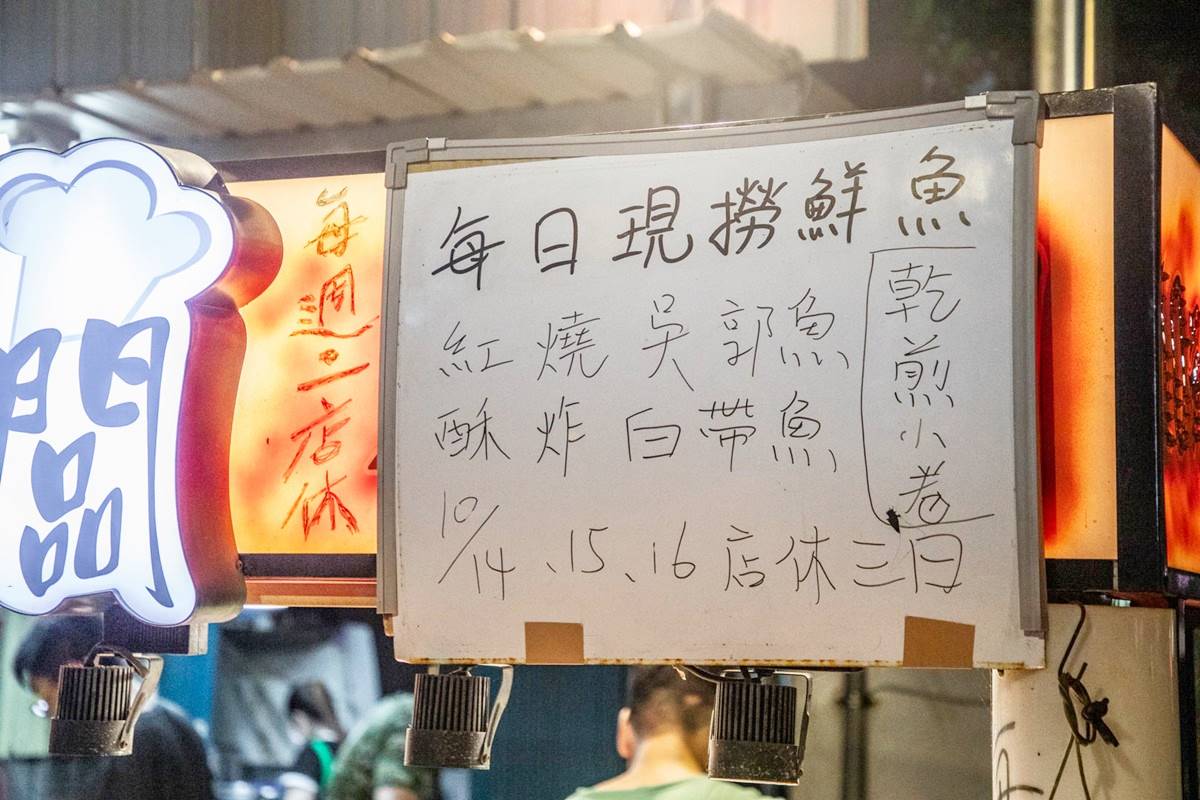 每日現撈鮮魚
紅燒吳郭魚
酥炸白帶魚
乾煎小卷
10/14、15、16店休三日
每週二店休